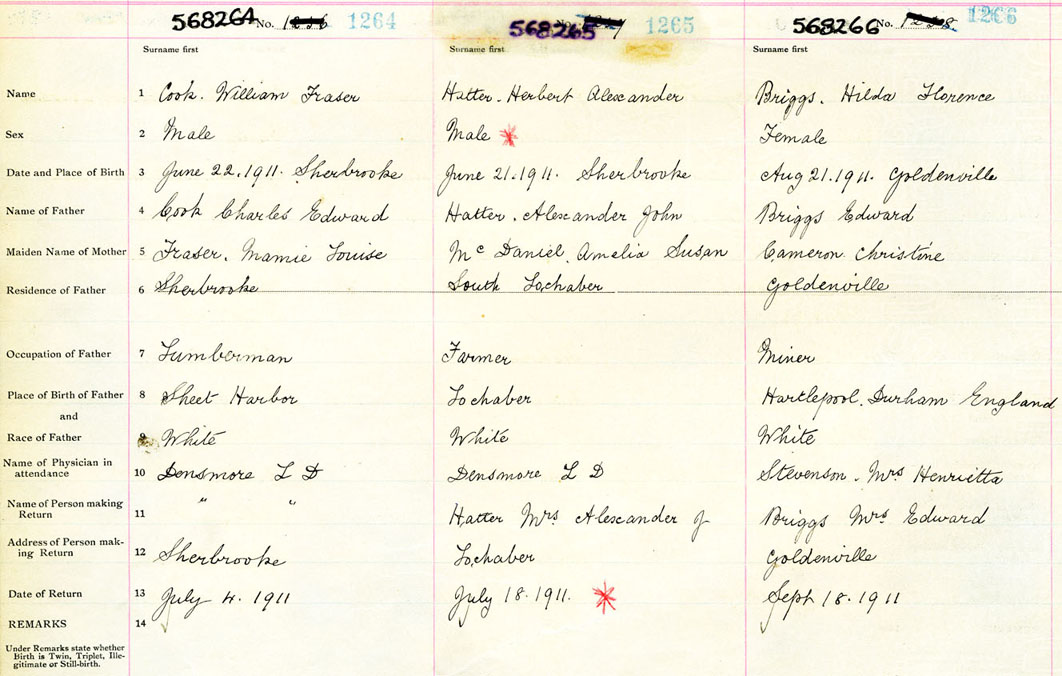 568264 No. 1264 568265 No. 1265 568266 No. 1266
Surname first Surname first Surname first
Name 1 Cook. William Fraser Hatter. Herbert Alexander Briggs. Hilda Florence
Sex 2 Male Male * Female
Date and Place of Birth 3 June 22. 1911. Sherbrooke June 21. 1911. Sherbrooke Aug 21. 1911. Goldenville
Name of Father 4 Cook Charles Edward Hatter. Alexander John Briggs Edward
Maiden Name of Mother 5 Fraser. Mamie Louise Mc Daniel. Amelia Susan Cameron Christine
Residence of Father 6 Sherbrooke South Lochaber Goldenville
Occupation of Father 7 Lumberman Farmer Miner
Place of Birth of Father 8 Sheet Harbor Lochaber Hartlepool. Durham England
and
Race of Father 9 White White White
Name of Physician in attendance 10 Densmore L D Densmore L D Stevenson. Mrs Henrietta
Name of Person making Return 11 " " Hatter Mrs Alexander J Briggs Mrs Edward
Address of Person mak-ing Return 12 Sherbrooke Lochaber Goldenville
Date of Return 13 July 4. 1911 July 18. 1911. * Sept 18. 1911
REMARKS 14
Under Remarks state whether
Birth is Twin, Triplet, Ille-
gitimate or Still-birth.